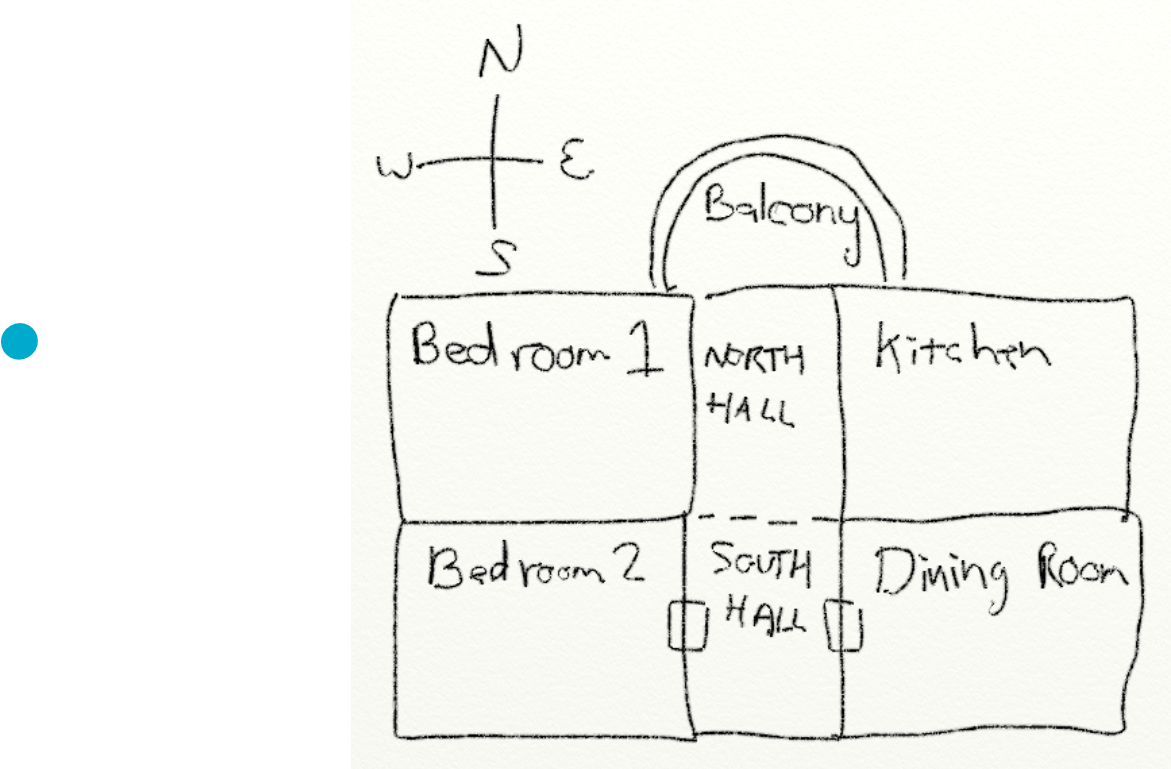 N
W E
S
Balcony
Bedroom 1
NORTH
HALL
Kitchen
Bedroom 2
SOUTH
HALL
Dining Room